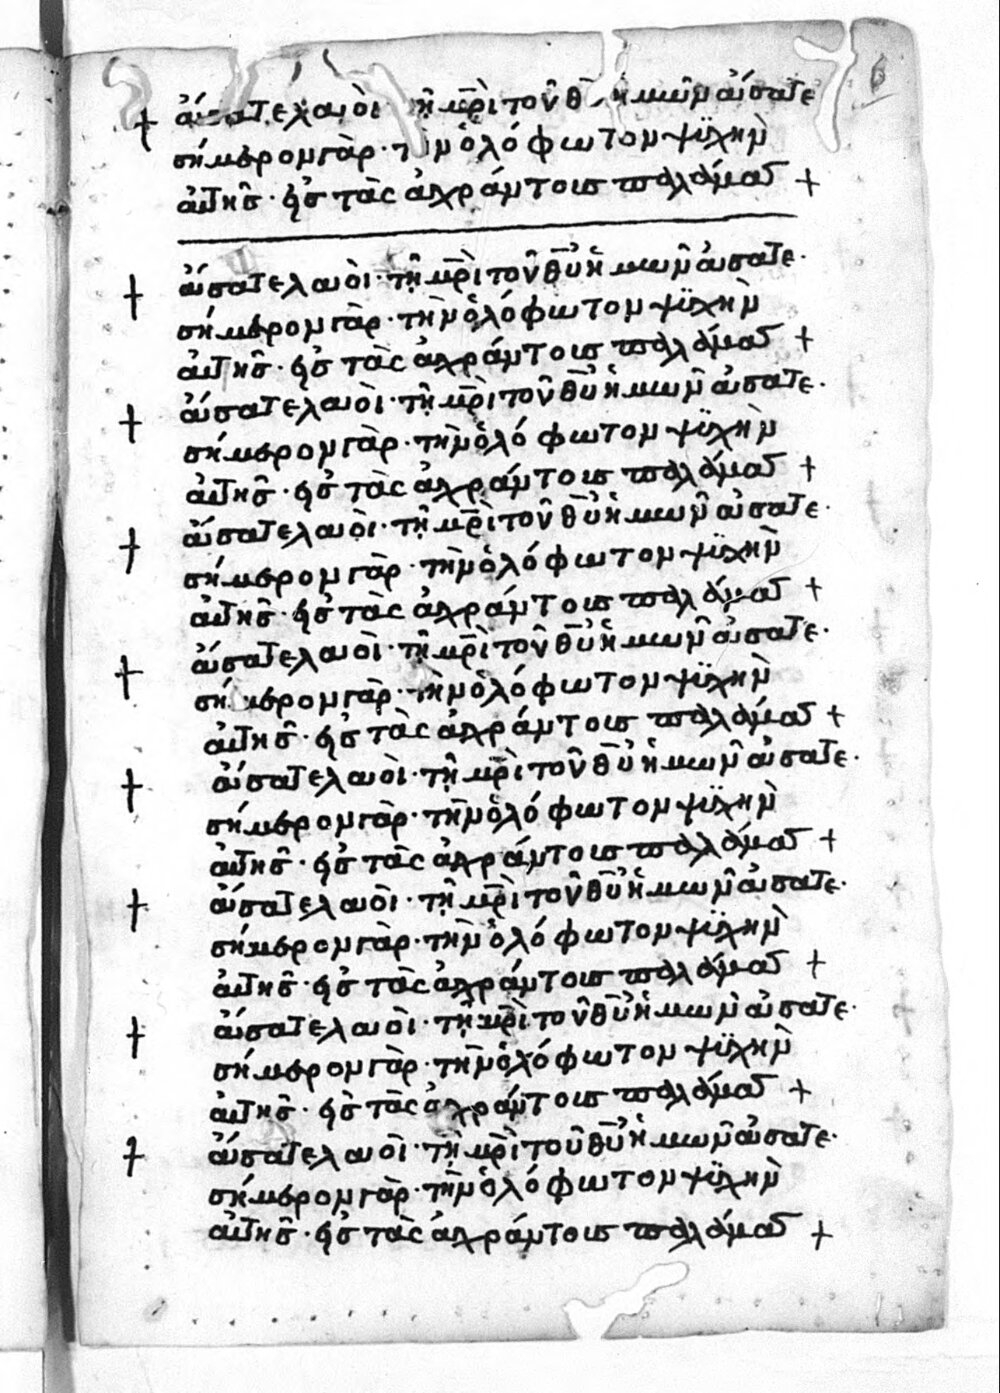 + ἄισατε λαοὶ· τῆ μρ̅ὶ τοῦ θ̅ ἡμῶν ἄισατε
σήμερον γὰρ· τὴν ὁλόφωτον ψϋχὴν
αὐτῆς· εἰς τὰς ἀχράντοις παλάμας +
+ ἄισατε λαοὶ· τῆ μρ̅ὶ τοῦ θ̅υ̅ ἡμῶν ἄισατε·
σήμερον γὰρ· τὴν ὁλόφωτον ψϋχὴν
αὐτῆς· εἰς τὰς ἀχράντοις παλάμας +
+ ἄισατε λαοὶ· τῆ μρ̅ὶ τοῦ θ̅υ̅ ἡμῶν ἄισατε·
σήμερον γὰρ· τὴν ὁλόφωτον ψϋχὴν
αὐτῆς· εἰς τὰς ἀχράντοις παλάμας +
+ ἄισατε λαοὶ· τῆ μρ̅ὶ τοῦ θ̅υ̅ ἡμῶν ἄισατε·
σήμερον γὰρ· τὴν ὁλόφωτον ψϋχὴν
αὐτῆς· εἰς τὰς ἀχράντοις παλάμας +
+ ἄισατε λαοὶ· τῆ μρ̅ὶ τοῦ θ̅υ̅ ἡμῶν ἄισατε·
σήμερον γὰρ· τὴν ὁλόφωτον ψϋχὴν
αὐτῆς· εἰς τὰς ἀχράντοις παλάμας +
+ ἄισατε λαοὶ· τῆ μρ̅ὶ τοῦ θ̅υ̅ ἡμῶν ἄισατε·
σήμερον γὰρ· τὴν ὁλόφωτον ψϋχὴν
αὐτῆς· εἰς τὰς ἀχράντοις παλάμας +
+ ἄισατε λαοὶ· τῆ μρ̅ὶ τοῦ θ̅υ̅ ἡμῶν ἄισατε·
σήμερον γὰρ· τὴν ὁλόφωτον ψϋχὴν
αὐτῆς· εἰς τὰς ἀχράντοις παλάμας +
+ ἄισατε λαοὶ· τῆ μρ̅ὶ τοῦ θ̅υ̅ ἡμῶν ἄισατε·
σήμερον γὰρ· τὴν ὁλόφωτον ψϋχὴν
αὐτῆς· εἰς τὰς ἀχράντοις παλάμας +
+ ἄισατε λαοὶ· τῆ μρ̅ὶ τοῦ θ̅υ̅ ἡμῶν ἄισατε·
σήμερον γὰρ· τὴν ὁλόφωτον ψϋχὴν
αὐτῆς· εἰς τὰς ἀχράντοις παλάμας +